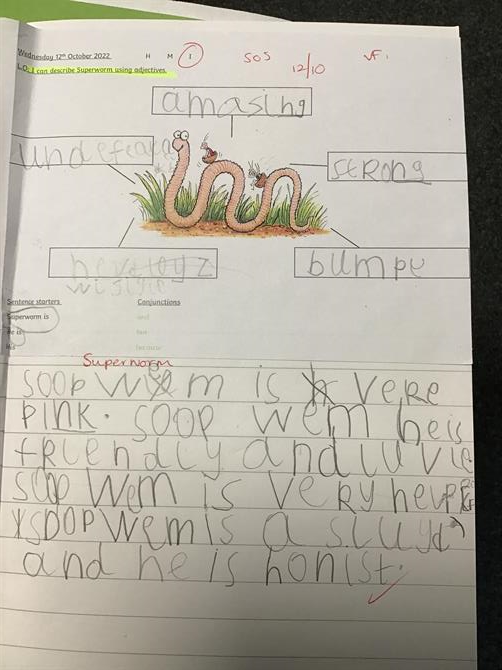 Wednesday 12th October 2022 H M I SOS 12/10 VF.
L.O: I can describe Superworm using adjectives.
amasing
undefeata
strong
bumpe
Sentence starters Conjunctions
Superworm is and
He is but
His because
Superworm
soop wem is vere
pink. soop wem he is
friendly and
soop wem is very
soop wem is a
and he is honist.